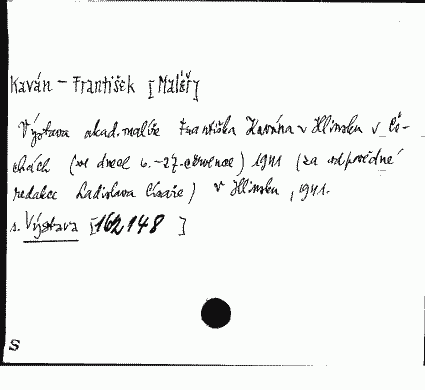 Kaván - František [Malíř]
Výstava akad. malíře Františka Kavána v Hlinsku v Če-
chách (ve dnech 6.-27. července) 1941 (za odpovědné
redakce Ladislava) v Hlinsku, 1941.
s. Výstava [162,148 ]
S